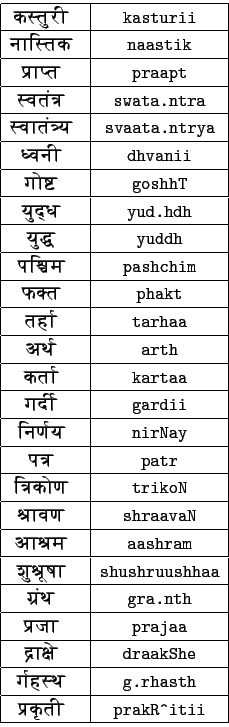 कस्तुरी kasturii
नास्तिक naastik
प्राप्त praapt
स्वतंत्र swata.ntra
स्वातंत्र्य svaata.ntrya
ध्वनी dhvanii
गोष्ट goshhT
युद्‌ध yud.hdh
युद्ध yuddh
पश्चिम pashchim
फक्त phakt
तर्हा tarhaa
अर्थ arth
कर्ता kartaa
गर्दी gardii
निर्णय nirNay
पत्र patr
त्रिकोण trikoN
श्रावण shraavaN
आश्रम aashram
शुश्रूषा shushruushhaa
ग्रंथ gra.nth
प्रजा prajaa
द्राक्षे draakShe
र्गहस्थ g.rhasth
प्रकृती prakR^itii